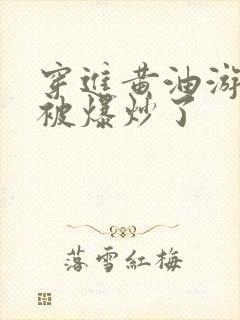 穿進黄油游
被爆炒了
落雪紅梅